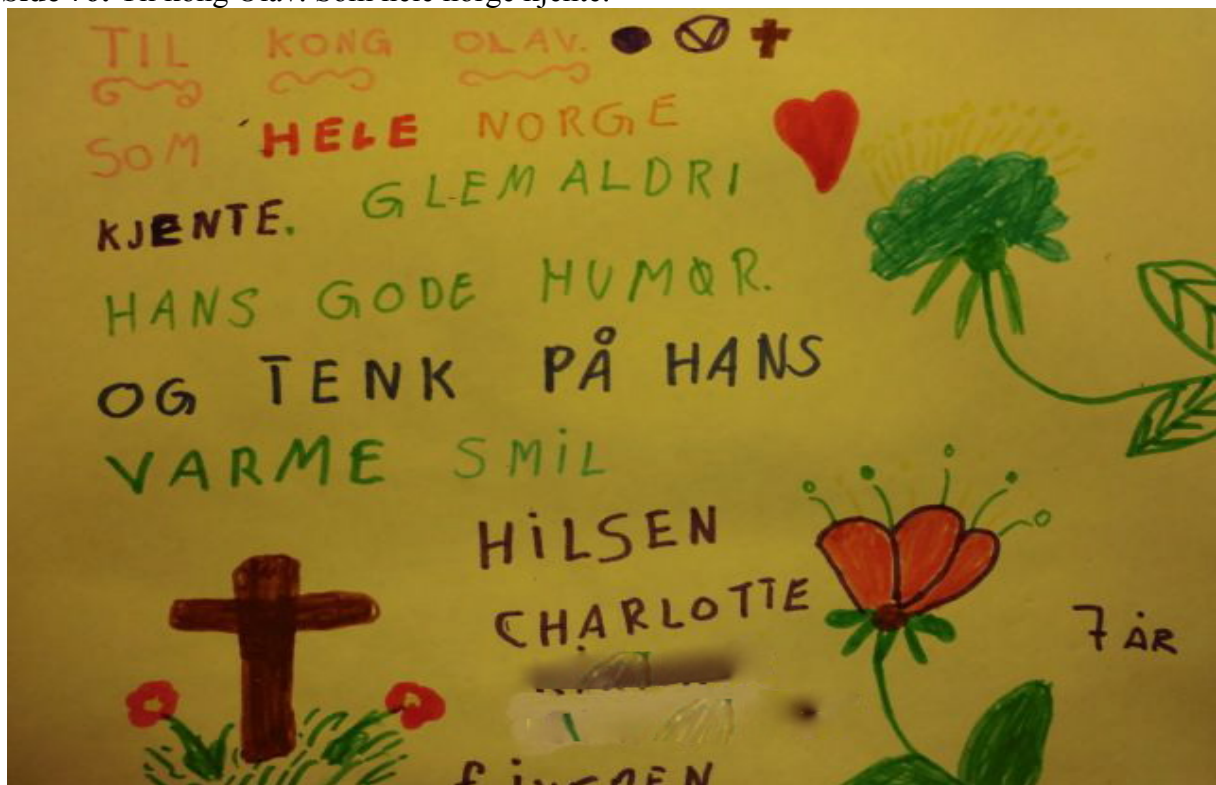 TIL KONG OLAV.
SOM HELE NORGE
KJENTE. GLEM ALDRI
HANS GODE HUMØR.
OG TENK PÅ HANS
VARME SMIL
HILSEN
CHARLOTTE
7 ÅR